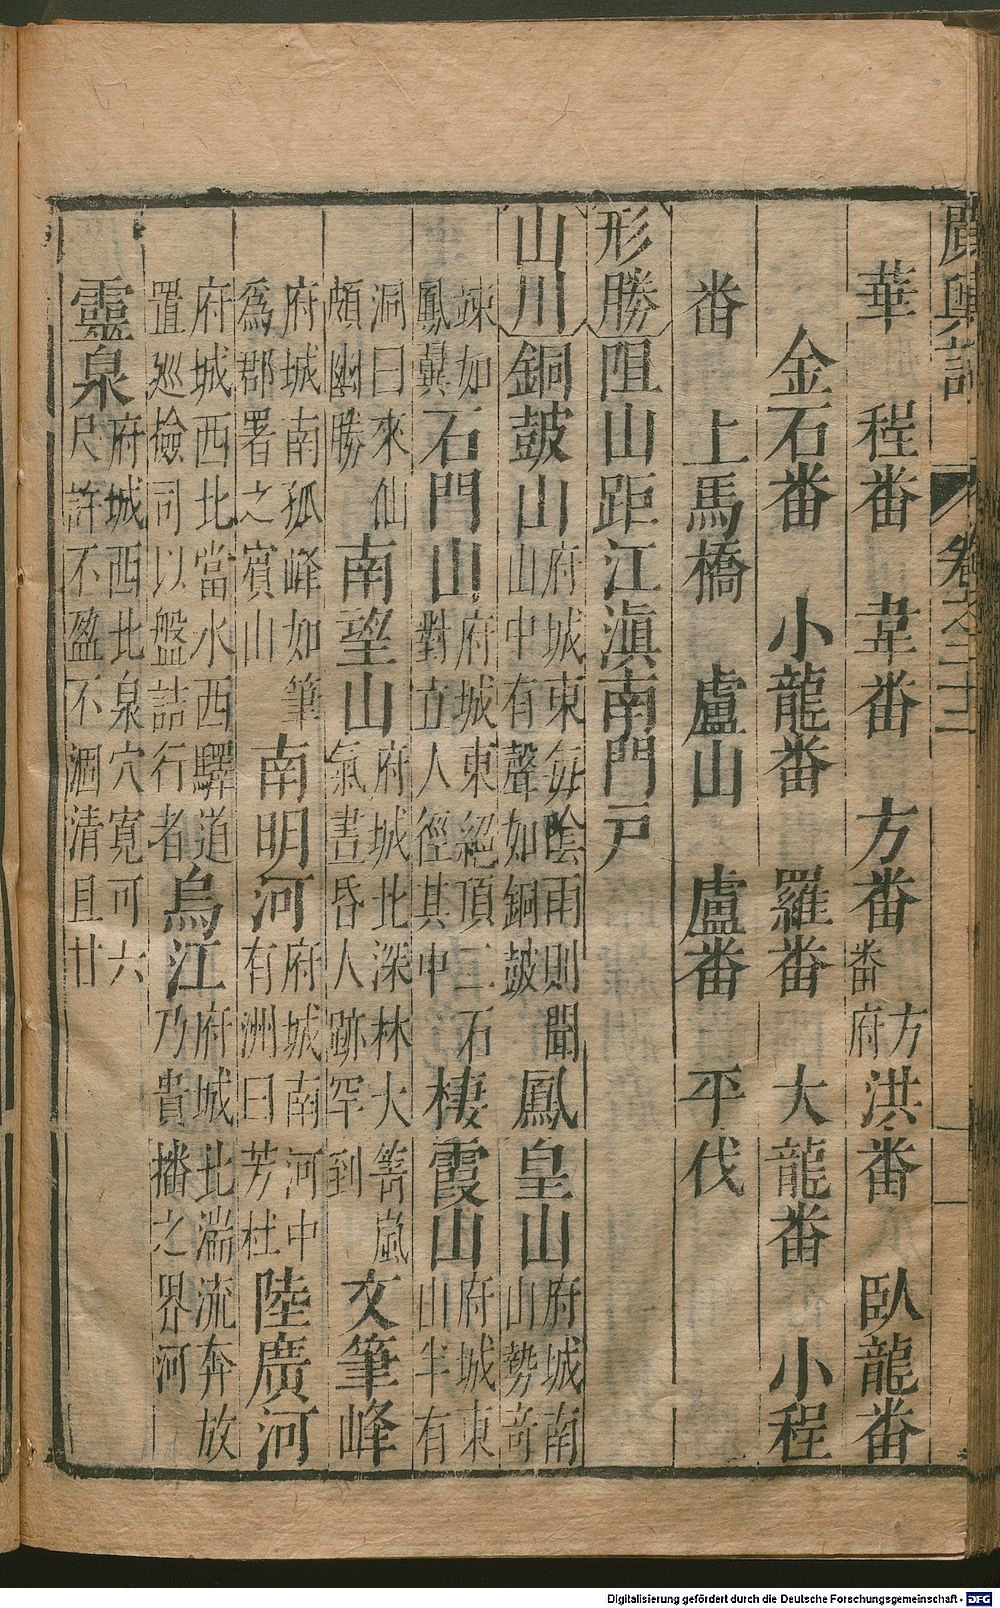 廣輿記 卷之二十二
華 程番 韋番 方番 方番府 洪番 臥龍番
金石番 小龍番 羅番 大龍番 小程
番 上馬橋 盧山 盧番 平伐
形勝 阻山距江滇南門戸
山川 銅鼓山 府城東每陰雨則聞山中有聲如銅鼓 鳳皇山 府城南山勢奇
竦如鳳翼 石門山 府城東絕頂二石對立人徑其中 棲霞山 府城東山半有
洞曰來仙頗幽勝 南望山 府城北深林大箐嵐氣晝昏人跡罕到 文筆峰
府城南孤峰如筆爲郡署之賓山 南明河 府城南河中有洲曰芳杜 陸廣河
府城西北當水西驛道置巡檢司以盤詰行者 烏江 府城北湍流奔放乃貴播之界河
靈泉 府城西北泉穴寬可六尺許不盈不涸清且甘
Digitalisierung gefördert durch die Deutsche Forschungsgemeinschaft - DFG